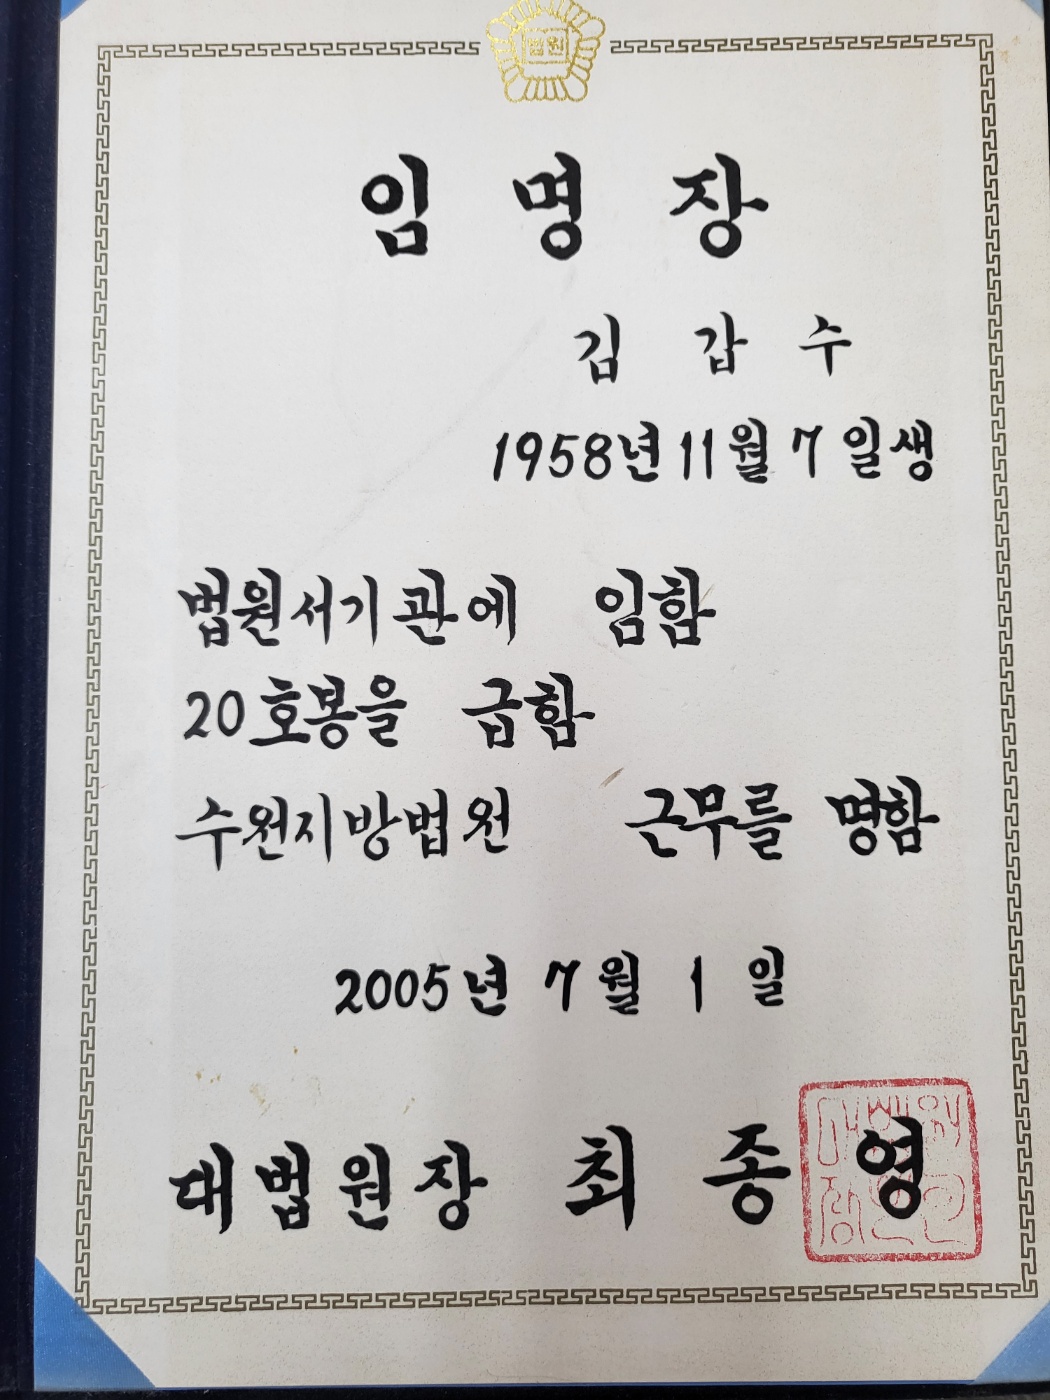 법원
임명장
김갑수
1958년 11월 7일생
법원서기관에 임함
20호봉을 급함
수원지방법원 근무를 명함
2005년 7월 1일
대법원장 최종영